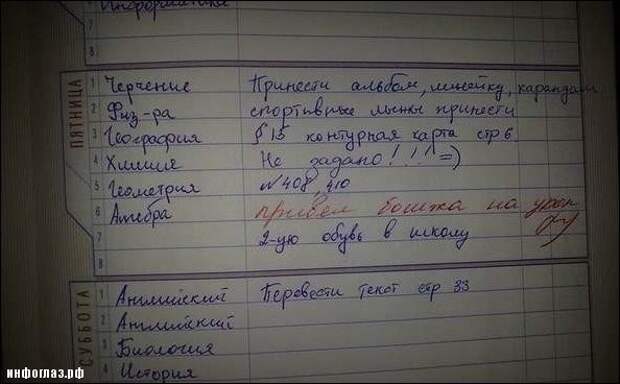 Информатика
7
8
ПЯТНИЦА
1 Черчение Принести альбом, линейку, карандаш
2 Физ-ра спортивные лыжи принести
3 География § 15 контурная карта стр 6
4 Химия Не задано!!! =)
5 Геометрия №408, 410
6 Алгебра привел бомжа на урок
7 2-ую обувь в школу
8
СУББОТА
1 Английский Перевести текст стр 33
2 Английский
3 Биология
4 История
инфоглаз.рф